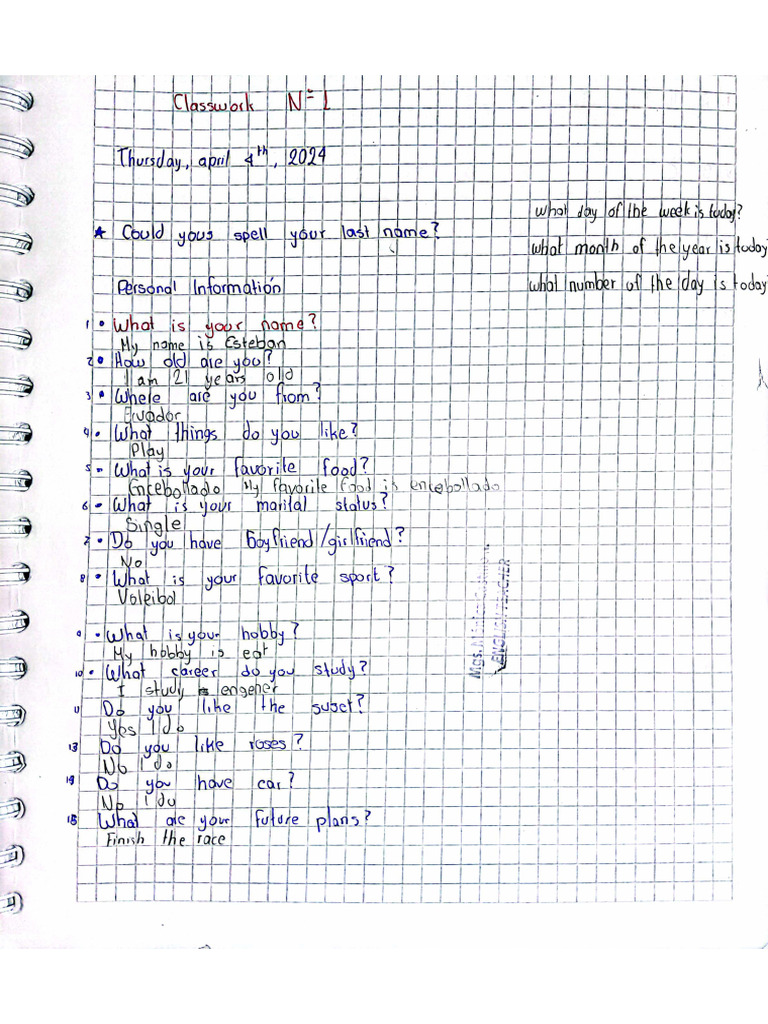 Classwork Nº 1
Thursday, april 4th, 2024
What day of the week is today?
* Could yous spell your last name?
what month of the year is today
Personal Informatión
what number of the day is today
1 • What is your name?
My name is Esteban
2 • How old are you?
I am 21 years old
3 • Where are you from?
Ecuador
4 • What things do you like?
Play
5 • What is your favorite food?
Encebollado My favorite food is encebollado
6 • What is your marital status?
Single
7 • Do you have boyfriend/girlfriend?
No
8 • What is your favorite sport?
Voleibol
9 • What is your hobby?
My hobby is eat
10 • What career do you study?
I study engener
11 Do you like the suset?
Yes I do
13 Do you like roses?
No I do
14 Do you have car?
No I do
15 What are your future plans?
Finish the race
Mgs.
ENGLISH TEACHER